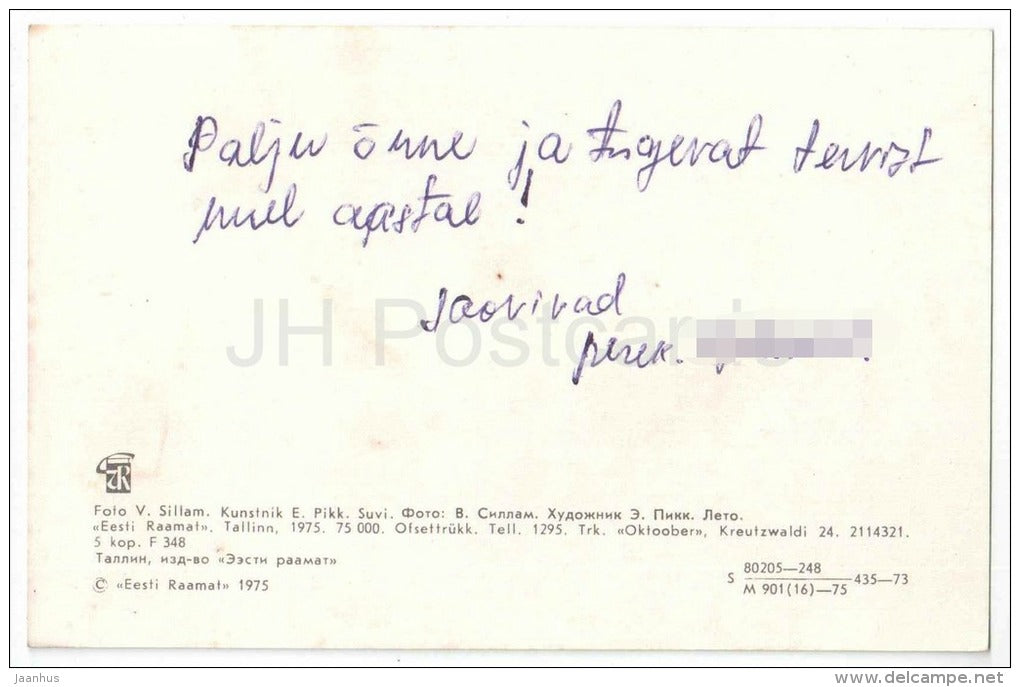 Palju õnne ja tugevat tervist
uuel aastal!
soovivad
perek.
JH Postcards
Foto V. Sillam. Kunstnik E. Pikk. Suvi. Фото: В. Силлам. Художник Э. Пикк. Лето.
«Eesti Raamat». Tallinn, 1975. 75 000. Ofsettrükk. Tell. 1295. Trk. «Oktoober», Kreutzwaldi 24. 2114321.
5 kop. F 348
Таллин, изд-во «Ээсти раамат»
© «Eesti Raamat» 1975
S 80205—248 435—73
M 901(16)—75
jaanhus
delcampe.net